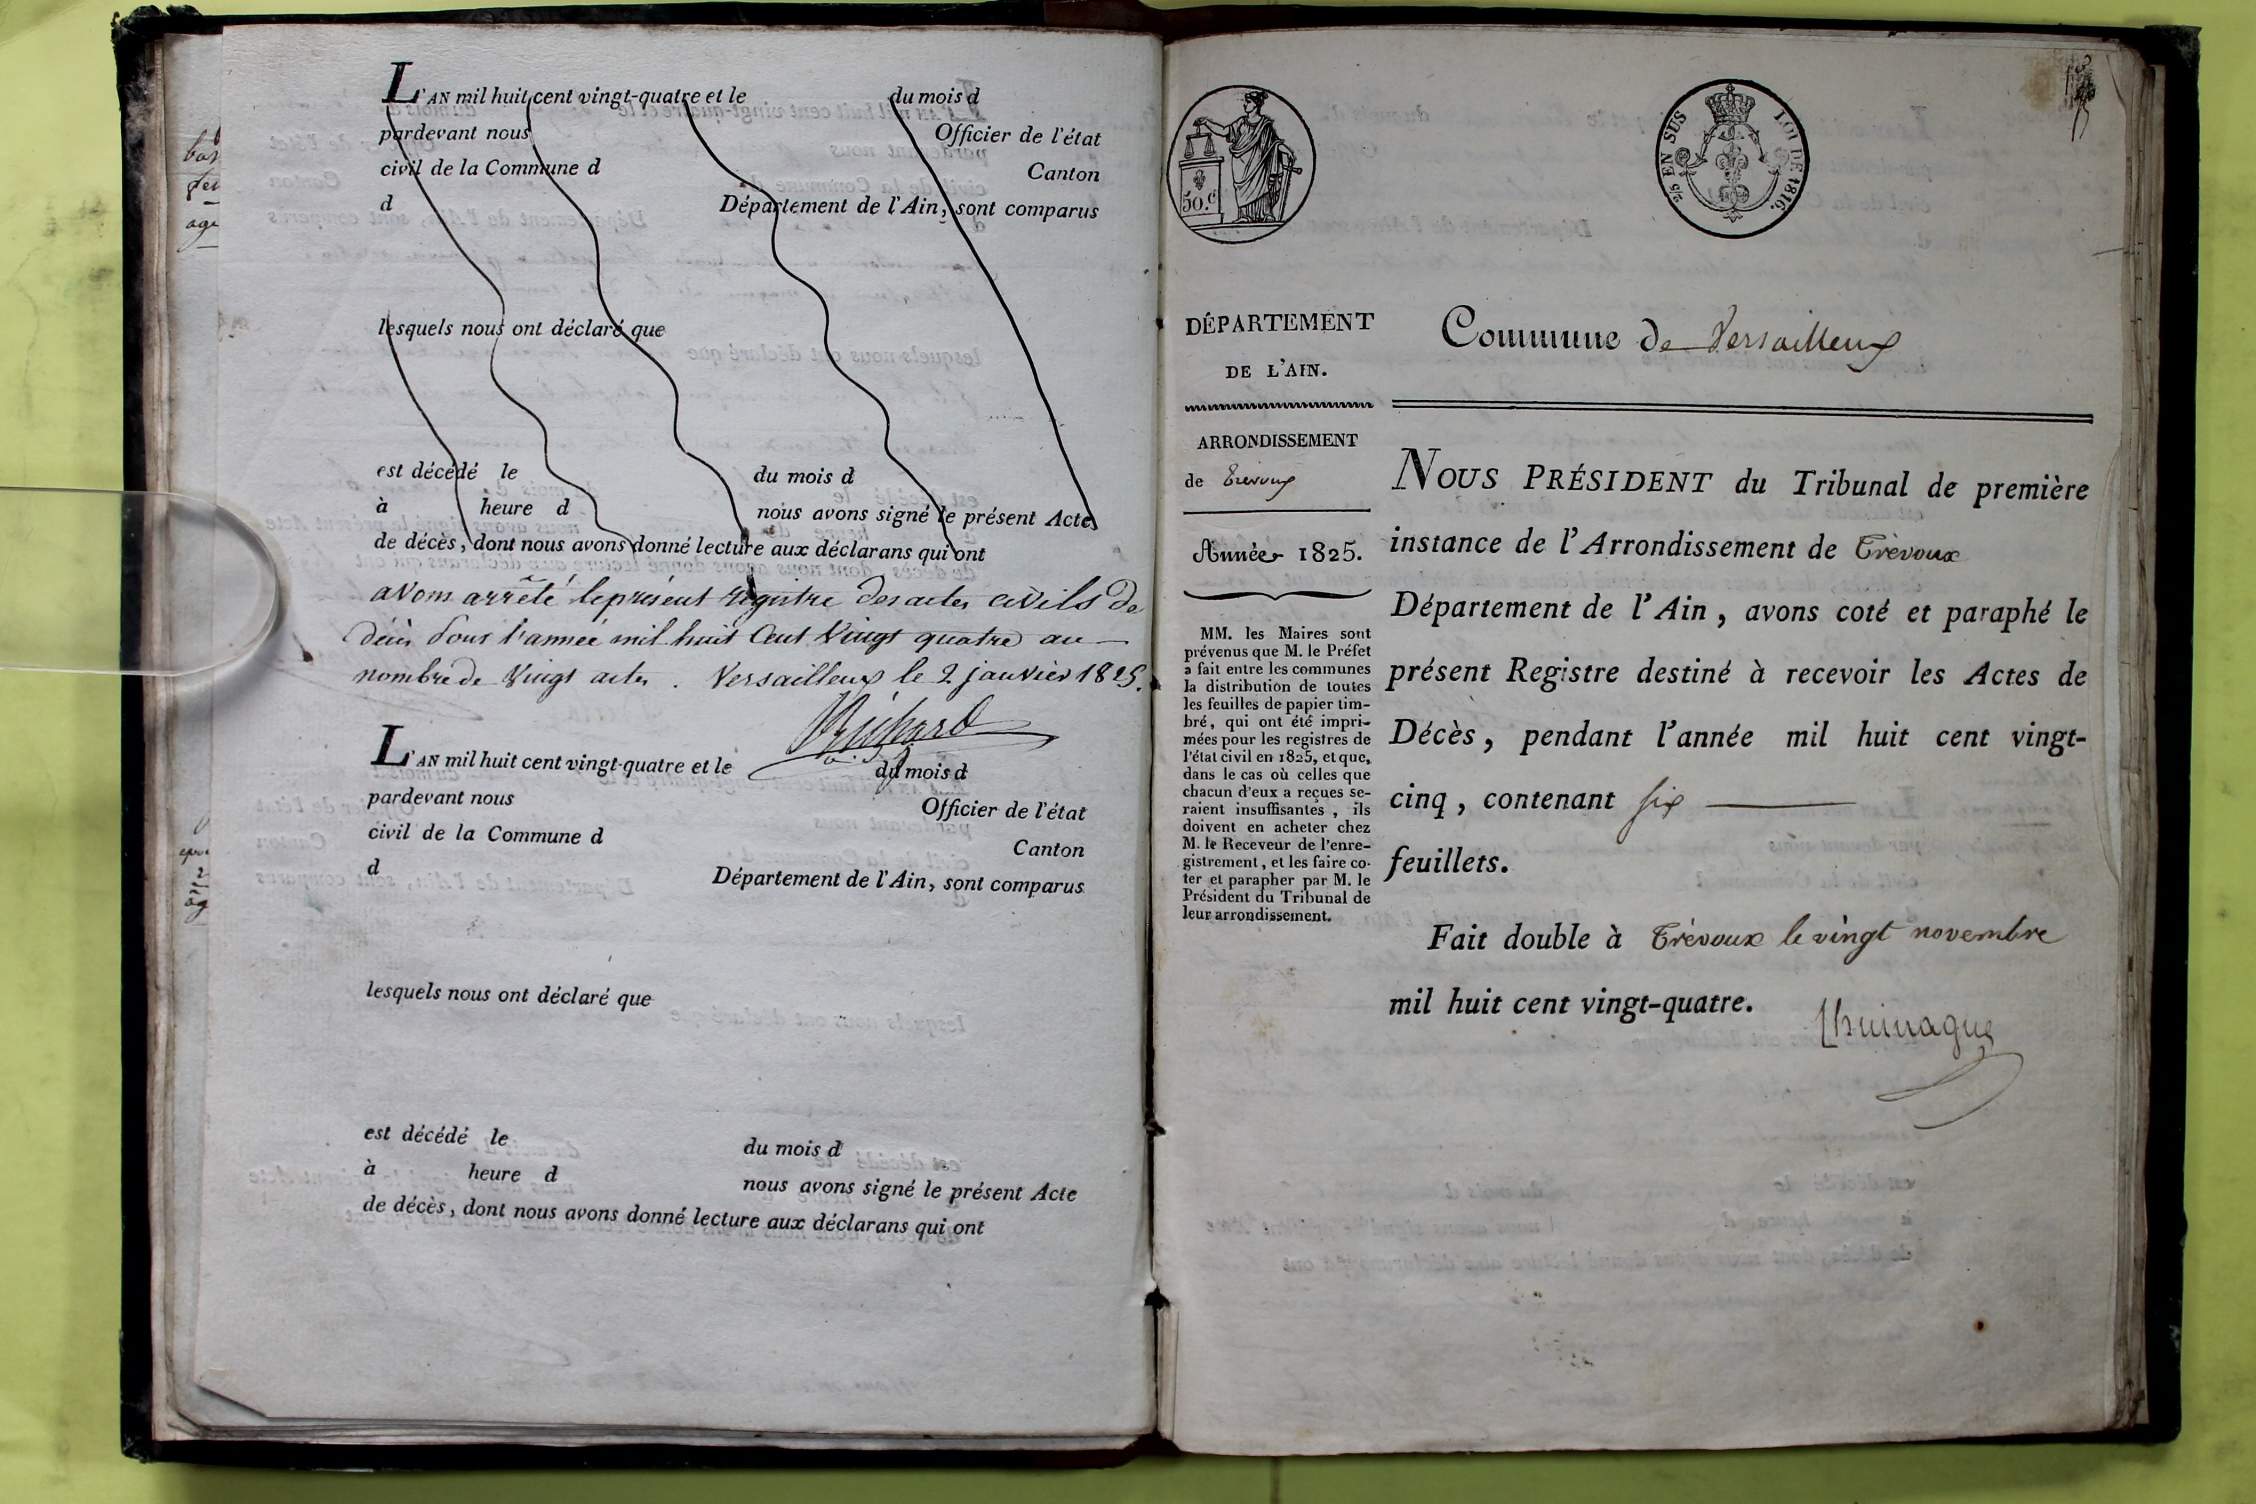 L'AN mil huit cent vingt-quatre et le du mois d
pardevant nous Officier de l'état
civil de la Commune d Canton
d Département de l'Ain, sont comparus
lesquels nous ont déclaré que
est décédé le du mois d
à heure d nous avons signé le présent Acte
de décès, dont nous avons donné lecture aux déclarans qui ont
avons arrêté le présent registre des actes civils de
décès pour l'année mil huit cent vingt quatre au
nombre de vingt actes. Versailleux le 2 janvier 1825.
Richard
L'AN mil huit cent vingt-quatre et le du mois d
pardevant nous Officier de l'état
civil de la Commune d Canton
d Département de l'Ain, sont comparus
lesquels nous ont déclaré que
est décédé le du mois d
à heure d nous avons signé le présent Acte
de décès, dont nous avons donné lecture aux déclarans qui ont
50.c
2/5 EN SUS LOI DE 1816.
DÉPARTEMENT
DE L'AIN.
ARRONDISSEMENT
de Trévoux
Année 1825.
MM. les Maires sont
prévenus que M. le Préfet
a fait entre les communes
la distribution de toutes
les feuilles de papier tim-
bré, qui ont été impri-
mées pour les registres de
l'état civil en 1825, et que,
dans le cas où celles que
chacun d'eux a reçues se-
raient insuffisantes, ils
doivent en acheter chez
M. le Receveur de l'enre-
gistrement, et les faire co-
ter et parapher par M. le
Président du Tribunal de
leur arrondissement.
Commune de Versailleux
NOUS PRÉSIDENT du Tribunal de première
instance de l'Arrondissement de Trévoux
Département de l'Ain, avons coté et paraphé le
présent Registre destiné à recevoir les Actes de
Décès, pendant l'année mil huit cent vingt-
cinq, contenant six
feuillets.
Fait double à Trévoux le vingt novembre
mil huit cent vingt-quatre.